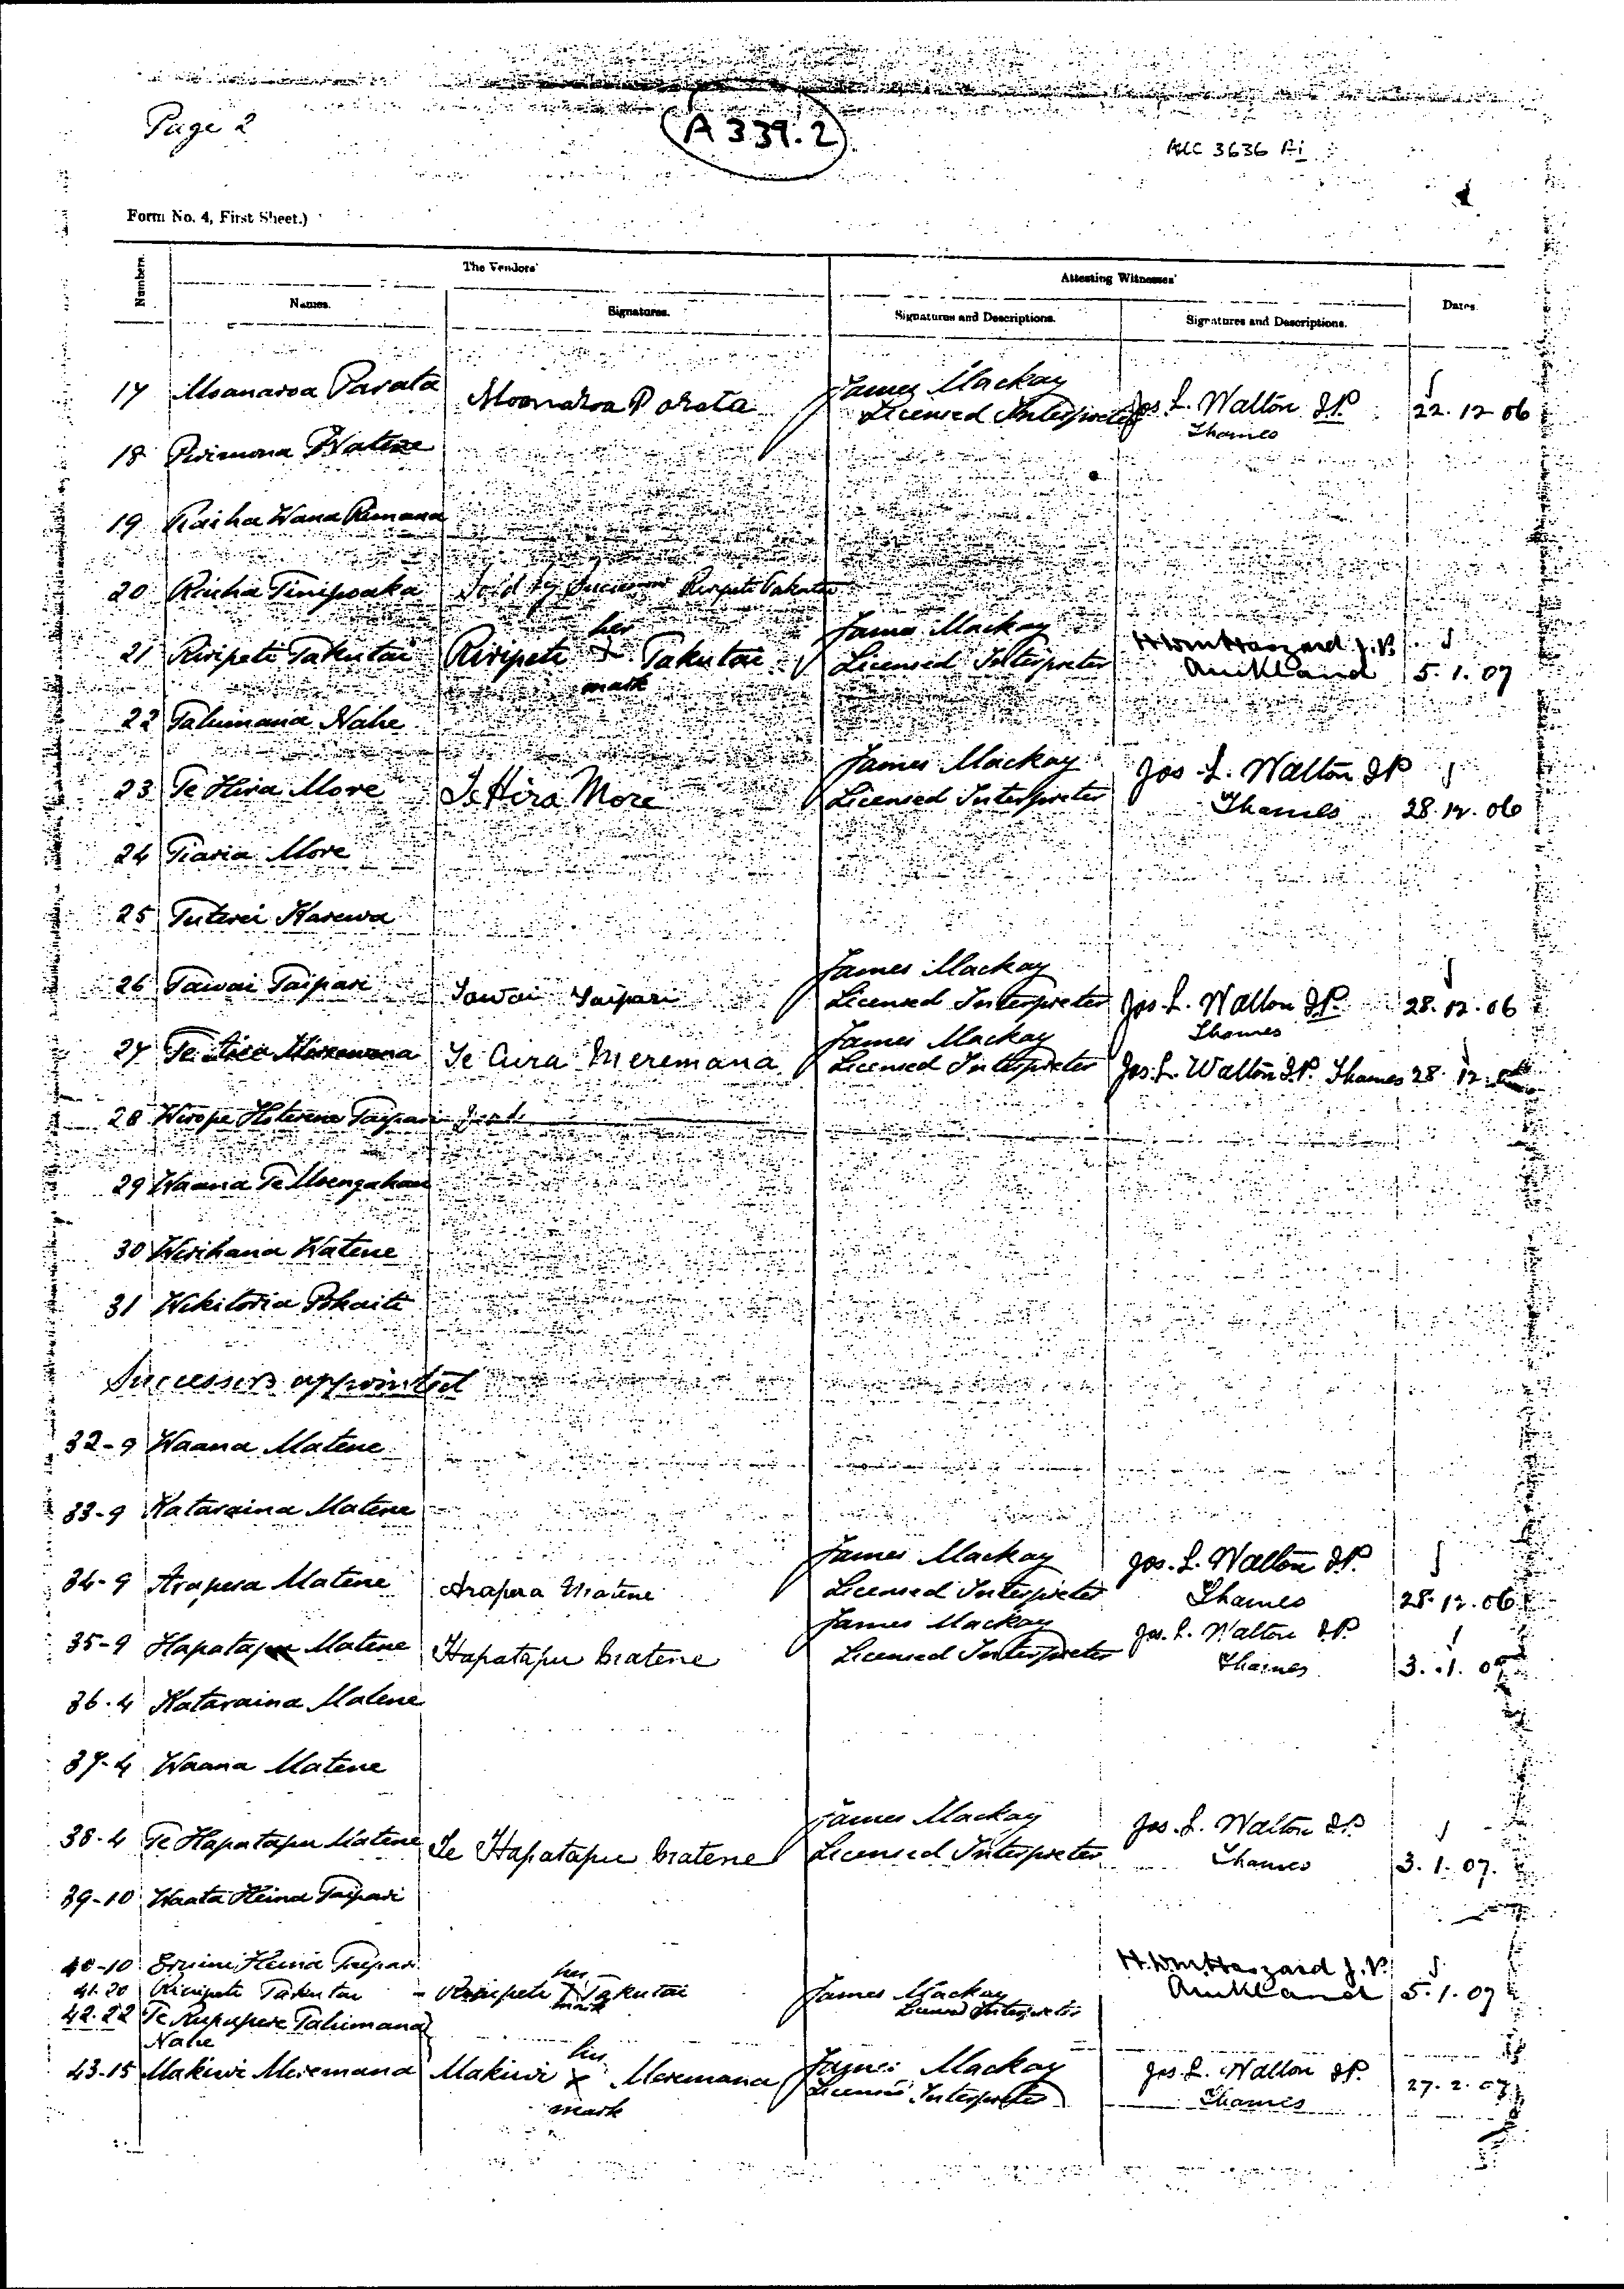 Page 2
A 339.2
ACC 3636 Ai
Form No. 4, First Sheet.)
Numbers.
The Vendors'
Attesting Witnesses'
Names.
Signatures.
Signatures and Descriptions.
Signatures and Descriptions.
Dates.
17 Moanaroa Parata Moanaroa Parata James Mackay Jos. L. Walton J.P. 22.12.06
Licensed Interpreter Thames
18 Watene
19
20 Sold by Successor Riripeti Takutai
21 Riripeti Takutai Riripeti her x mark Takutai James Mackay J.P.
Licensed Interpreter Auckland 5.1.07
22 Tahumana Nahe
23 Te Hira More Te Hira More James Mackay Jos. L. Walton J.P.
Licensed Interpreter Thames 28.12.06
24 Tiaria More
25 Tuterei Karewa
26 Tawai Taipari Tawai Taipari James Mackay
Licensed Interpreter Jos. L. Walton J.P. 28.12.06
Thames
27 Te Aura Meremana James Mackay
Licensed Interpreter Jos. L. Walton J.P. Thames 28.12.
28 Wirope Hoterene Taipari
29 Waana Te Moengahau
30 Wirihana Watene
31 Wikitoria Pokaiti
Successors appointed
32-9 Waana Matene
33-9 Kataraina Matene
34-9 Arapera Matene Arapera Matene James Mackay Jos. L. Walton J.P.
Licensed Interpreter Thames 28.12.06
35-9 Hapatapu Matene Hapatapu Matene James Mackay Jos. L. Walton J.P.
Licensed Interpreter Thames 3.1.07
36.4 Kataraina Matene
37-4 Waana Matene
38-4 Te Hapatapu Matene Te Hapatapu Matene James Mackay Jos. L. Walton J.P.
Licensed Interpreter Thames 3.1.07.
39-10 Waata Heina Taipari
40-10 Eruini Heina Taipari J.P.
41.20 Riripeti Takutai Riripeti her x mark Takutai James Mackay Auckland 5.1.07
Licensed Interpreter
42.22 Te Rupupere Tahimana
Nahe
43-15 Makiwi Meremana Makiwi his x mark Meremana James Mackay Jos. L. Walton J.P. 27.2.07
Licensed Interpreter Thames